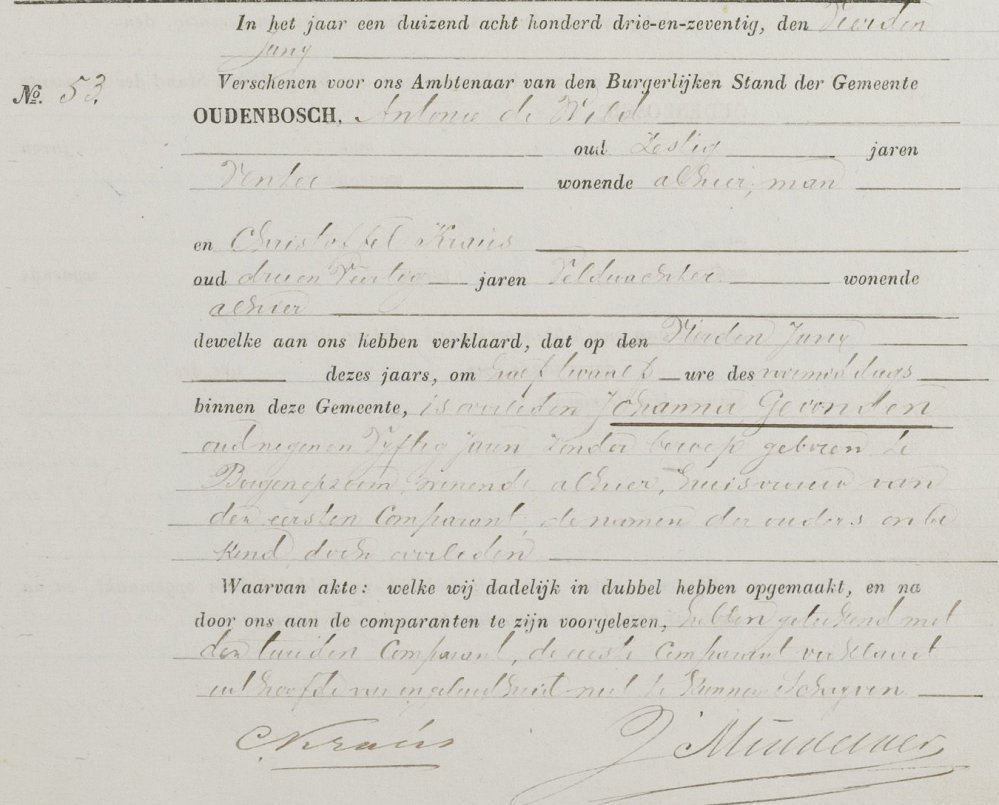 In het jaar een duizend acht honderd drie-en-zeventig, den Vierden
Juny
No. 53. Verschenen voor ons Ambtenaar van den Burgerlijken Stand der Gemeente
OUDENBOSCH, Antonie de Wild
oud Zestig jaren
Venter wonende alhier, man
en Christoffel Kraus
oud drieen Veertig jaren Veldwachter wonende
alhier
dewelke aan ons hebben verklaard, dat op den Vierden Juny
dezes jaars, om half twaalf ure des voormiddags
binnen deze Gemeente, is overleden Johanna Gevonden
oud negenen Vyftig jaren, Zonder beroep geboren te
Bergenopzoom, wonende alhier, huisvrouw van
den eersten Comparant, de namen der ouders onbe
kend, doch overleden
Waarvan akte: welke wij dadelijk in dubbel hebben opgemaakt, en na
door ons aan de comparanten te zijn voorgelezen, hebben geteekend met
den tweeden Comparant, de eerste Comparant verklaard
uit hoofde van ongeleerdheid niet te Kunnen Schryven
C Kraus